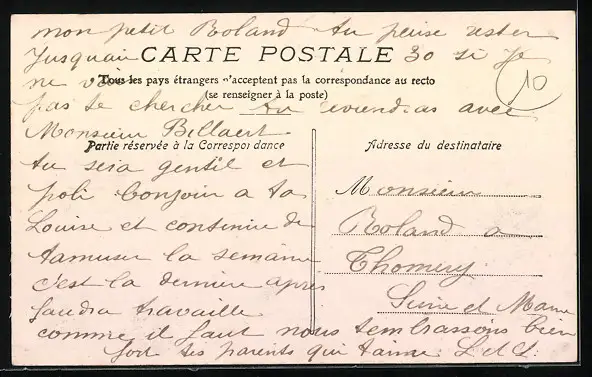 mon petit Roland tu peuse rester
Jusquau CARTE POSTALE 30 si je
ne vais
Tous les pays étrangers n'acceptent pas la correspondance au recto
(se renseigner à la poste)
10
pas te chercher tu reviendras avec
Monsieur Billaert
Partie réservée à la Correspondance
Adresse du destinataire
tu sera gentil et
poli bonjour a ta
Louise et continue de
tamuser la semaine
c'est la derniere apres
faudra travaille
comme il faut nous tembrassons bien
fort tes parents qui taime L et C.
Monsieur
Roland a
Thomery
Seine et Marne